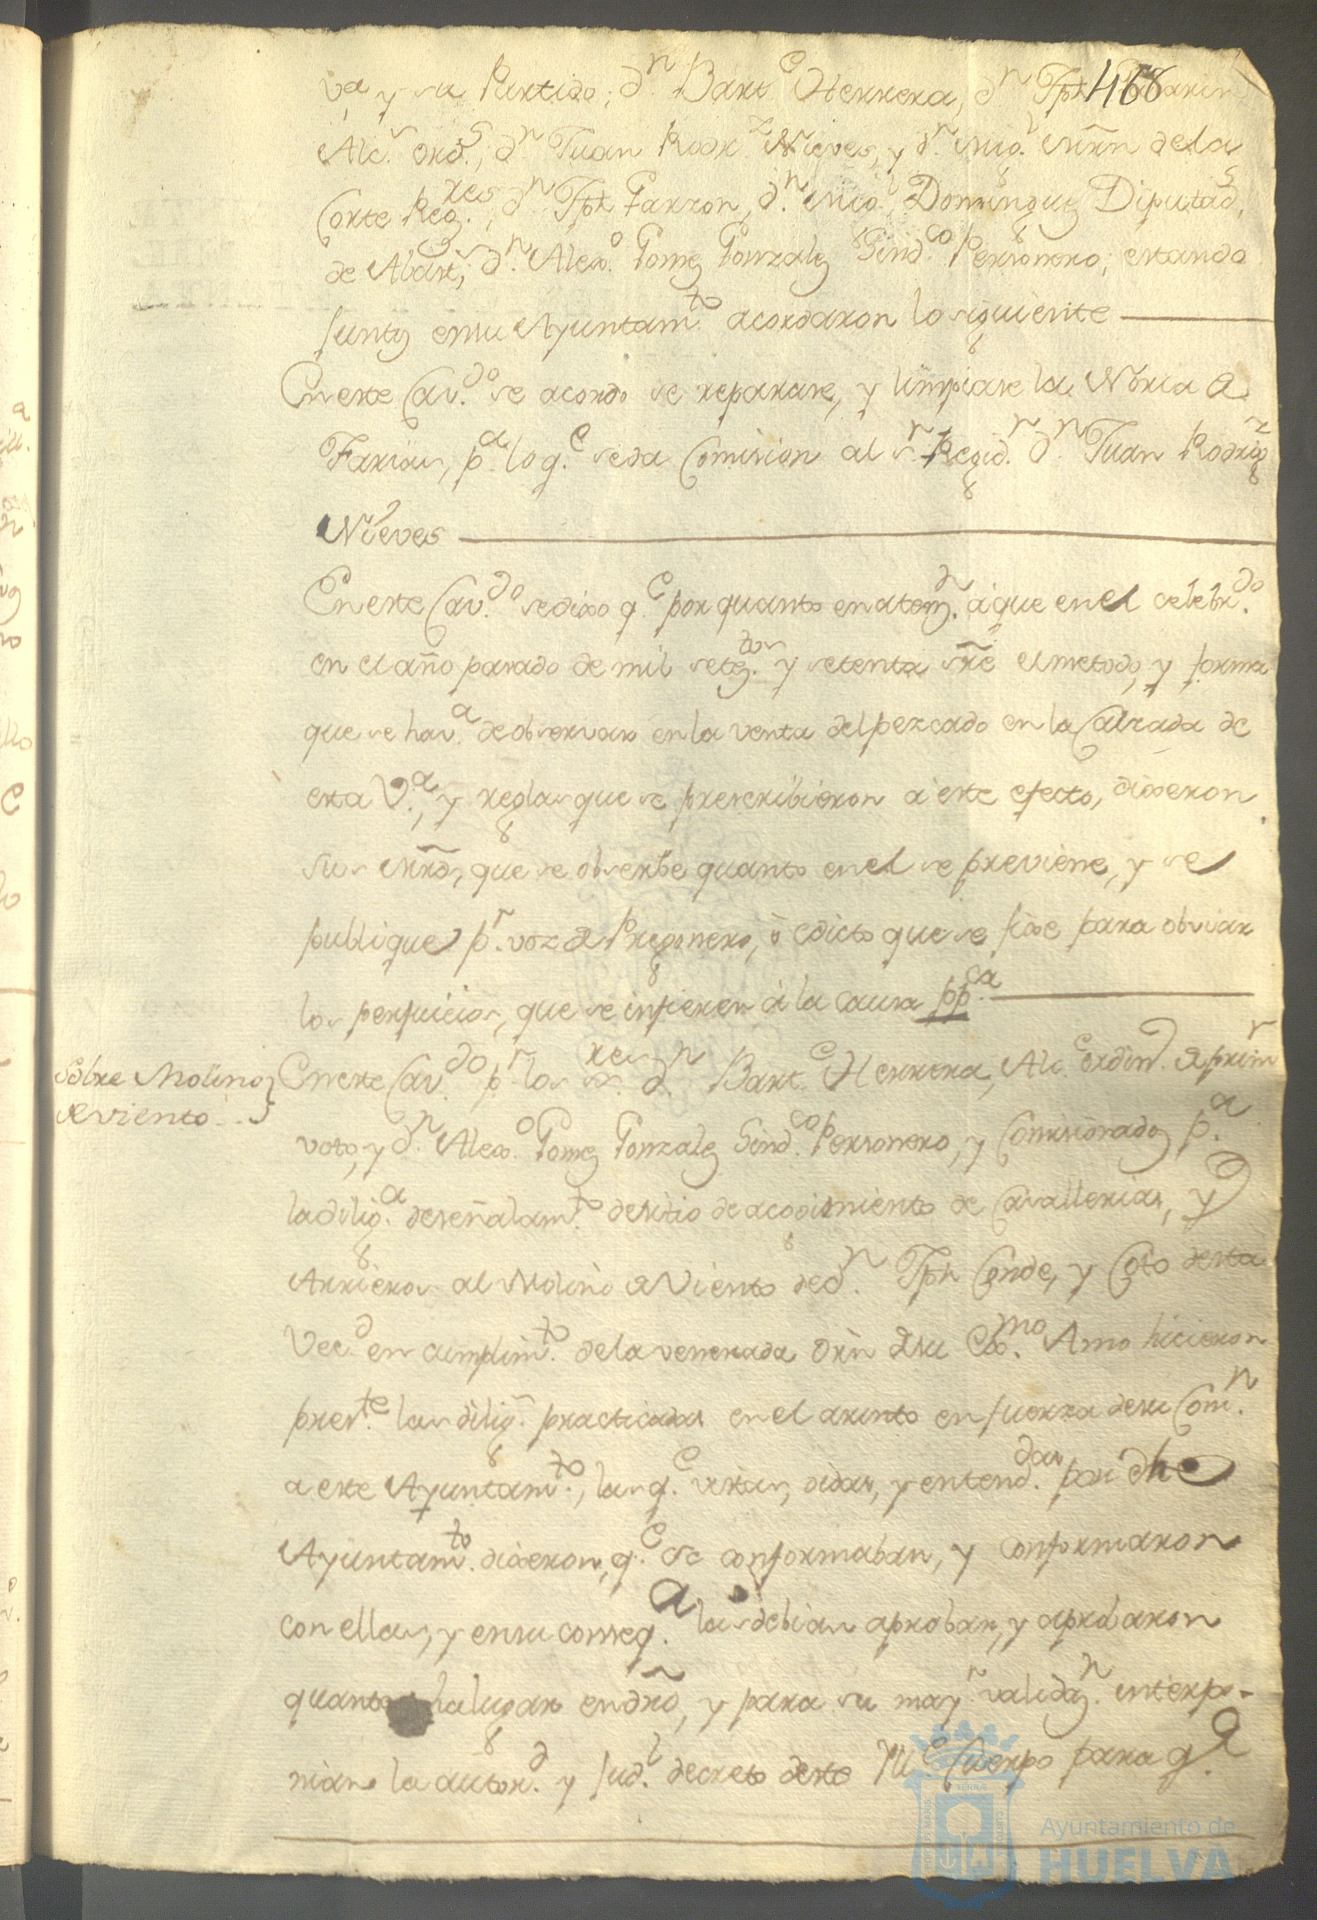 468
v.ª y su Partido; d.n Bart.e Herrera, d.n Jph
Alc.s ord.s, d.n Juan Rodr.z Nieves, y d.n Nico.l Mrñ de la
Corte Reg.res, d.n Jph Garzon, d.n Nico.l Dominguez Diputad.s
de Abast.s, d.n Alexo Gomez Gonzalez Sind.co Personero, estando
juntos en su Ayuntam.to acordaron lo siguiente
En este Cav.do se acordo se reparase, y limpiase la Noria a
Farias, p.a lo q.e se da Comision al s.r Regid.r d.n Juan Rodrig.z
Nieves
En este Cav.do se dixo q.e por quanto en atenz.n à que en el celebr.do
en el año pasado de mil setez.tos y setenta sre el metodo, y forma
que se hav.a de observar en la venta del pezcado en la Calzada de
esta V.a, y reglas que se prescribieron à este efecto, dixeron
sus mrds, que se observe quanto en el se previene, y se
publique p.r voz de Pregonero, ò edicto que se fixe para obviar
los perjuicios, que se infieren à la causa pp.ca
Sobre Molino
de viento
En este Cav.do p.r los s.res d.n Bart.e Herrera, Alc.e ordin.o de prim.r
voto, y d.n Alexo Gomez Gonzalez Sind.co Personero, y Comisionados p.a
la dilig.a de señalam.to de sitio de acogimiento de Cavallerias, y
Arrieros al Molino de Viento de d.n Jph Conde, y Coto desta
Vec.d en cumplim.to de la venerada orñ de su Ex.mo Amo hicieron
pres.te las dilig.s practicadas en el asunto en fuerza de su Com.n
a este Ayuntam.to, las q.e vistas, oidas, y entend.das por dho
Ayuntam.to dixeron, q.e se conformaban, y conformaron
con ellas, y en su conseq.a las debian aprobar, y aprobaron
quanto ha lugar en dro, y para su may.r validaz.n interpo-
nian la autor.d y jud.l decreto deste Ylle Cuerpo para q.e
Ayuntamiento de
HUELVA